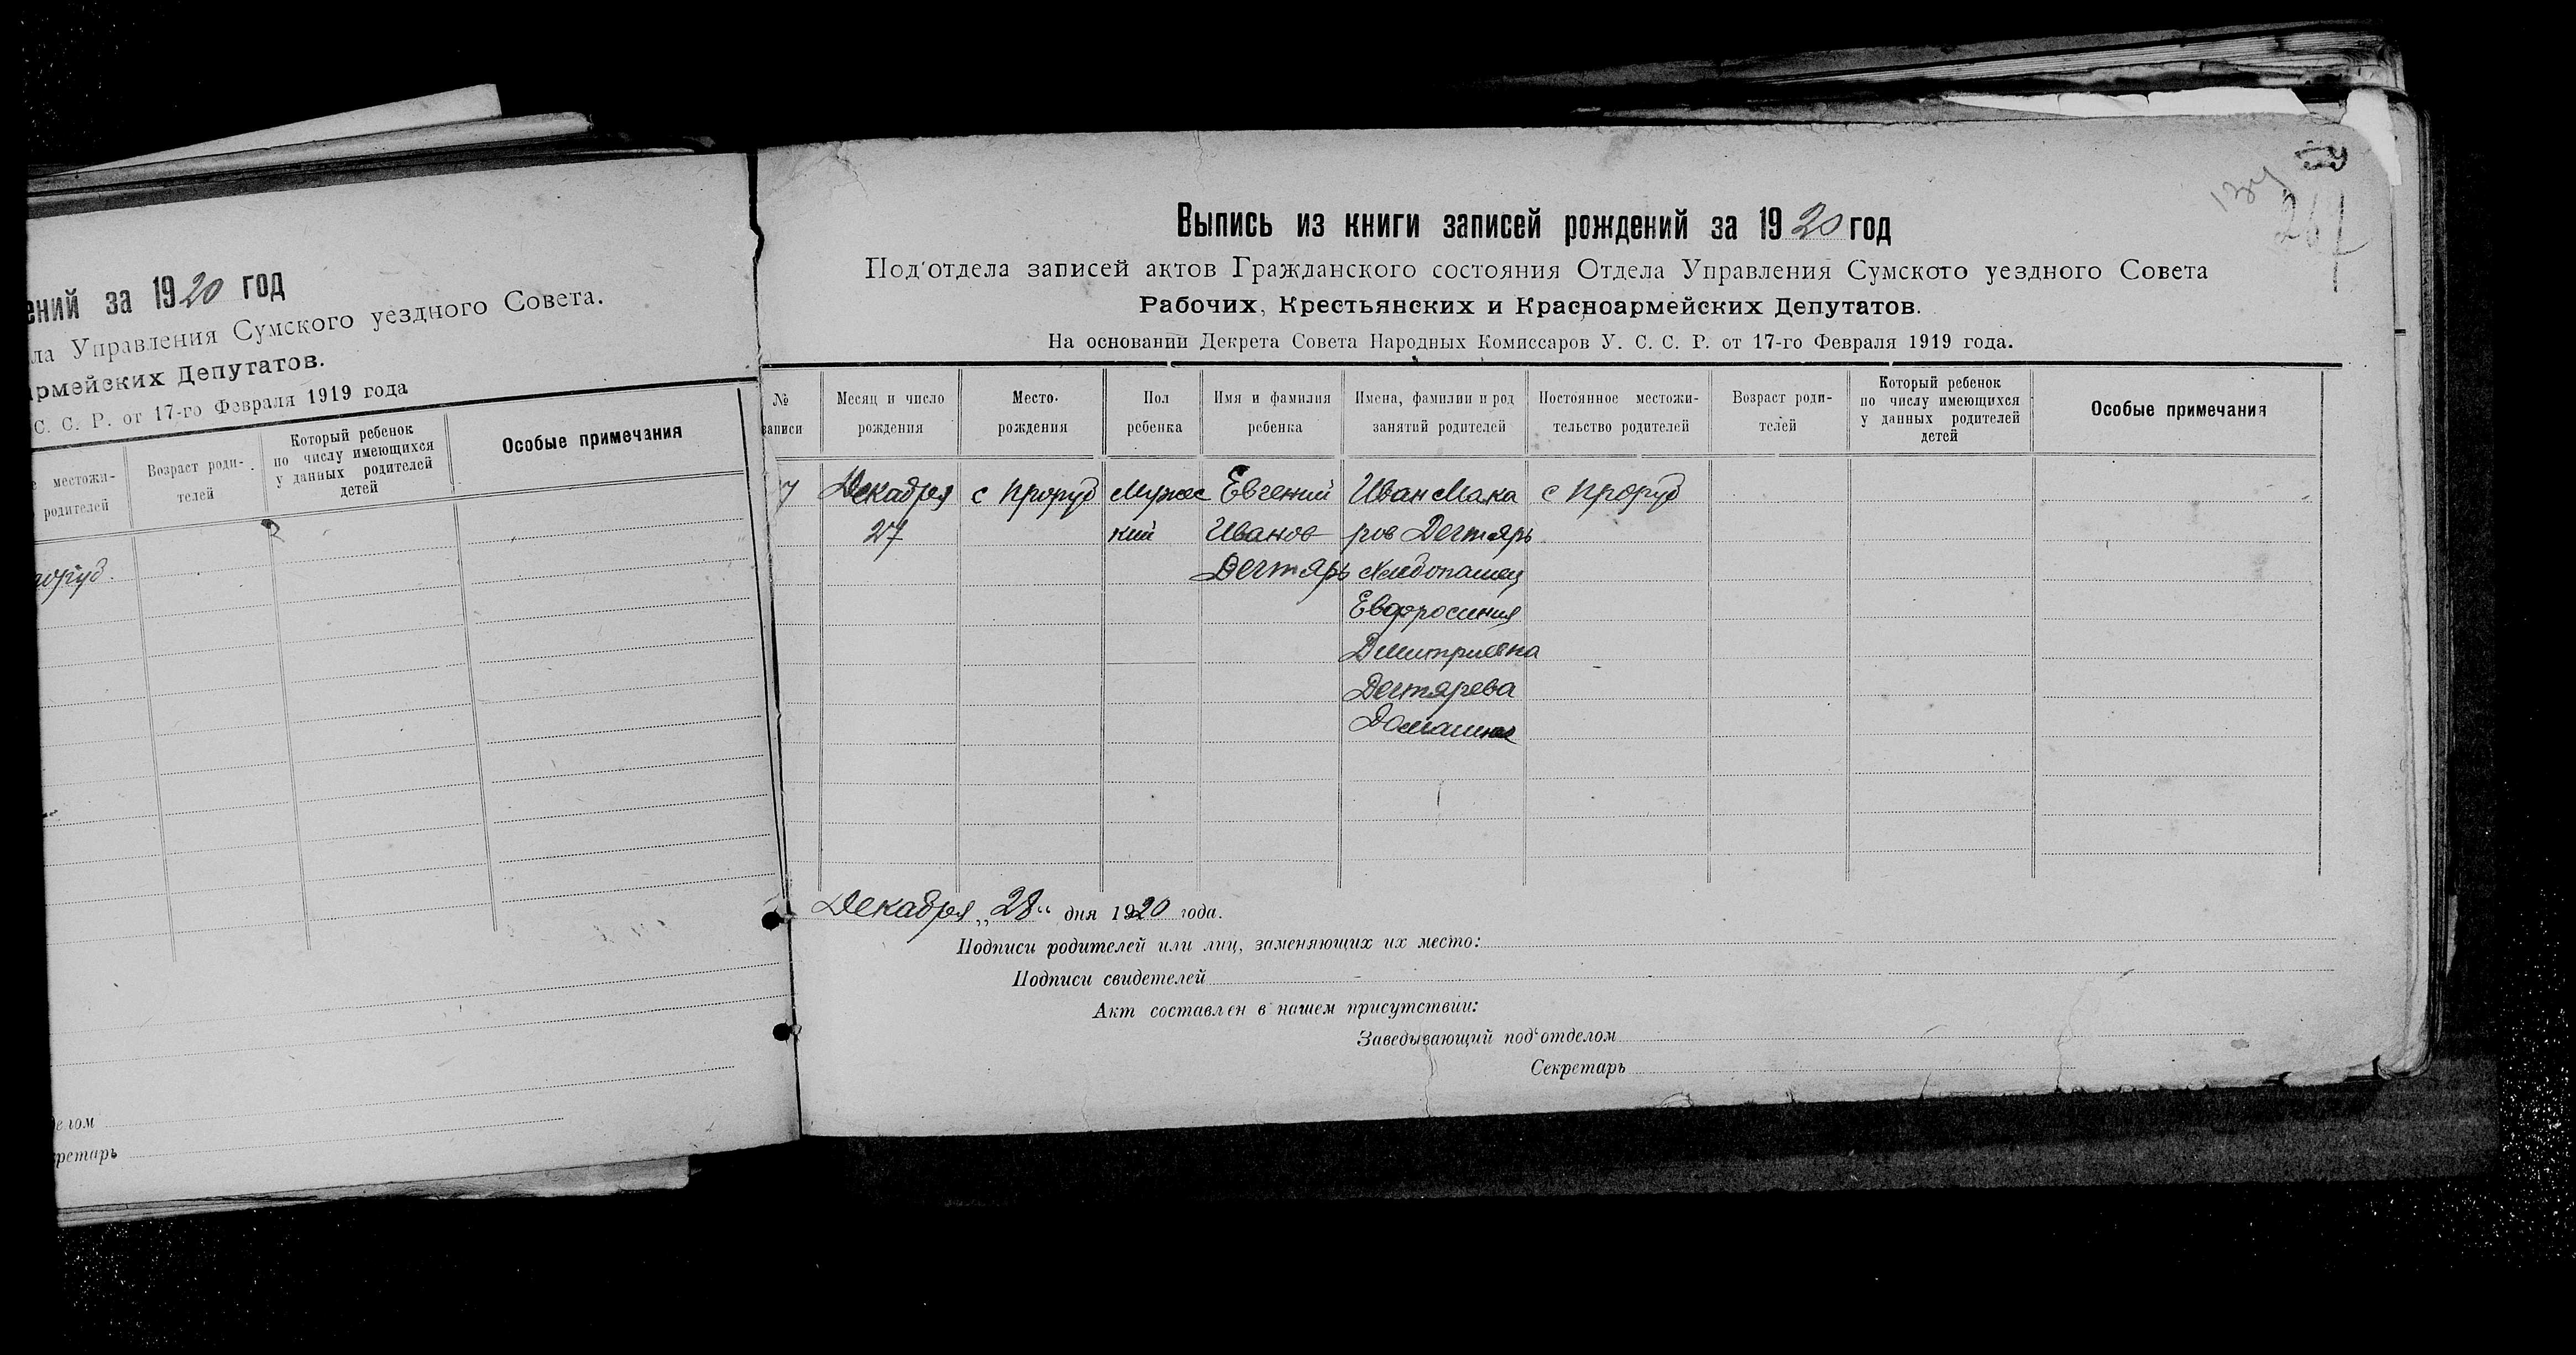 ений за 1920 год
ла Управления Сумского уездного Совета.
армейских Депутатов.
С. С. Р. от 17-го Февраля 1919 года
е местожи-
родителей
Возраст роди-
телей
Который ребенок
по числу имеющихся
у данных родителей
детей
Особые примечания
елом
кретарь
134
267
Выпись из книги записей рождений за 1920 год
Под'отдела записей актов Гражданского состояния Отдела Управления Сумского уездного Совета
Рабочих, Крестьянских и Красноармейских Депутатов.
На основании Декрета Совета Народных Комиссаров У. С. С. Р. от 17-го Февраля 1919 года.
№
записи
Месяц и число
рождения
Место-
рождения
Пол
ребенка
Имя и фамилия
ребенка
Имена, фамилии и род
занятий родителей
Постоянное местожи-
тельство родителей
Возраст роди-
телей
Который ребенок
по числу имеющихся
у данных родителей
детей
Особые примечания
7 Декабря с Проруб Мужес Евгений Иван Мака с Проруб
27 кий Иванов ров Дегтярь
Дегтярь Хлебопашец
Евфросиния
Димитриевна
Дегтярева
Домашняя
Декабря „28“ дня 1920 года.
Подписи родителей или лиц, заменяющих их место:
Подписи свидетелей
Акт составлен в нашем присутствии:
Заведывающий под'отделом
Секретарь